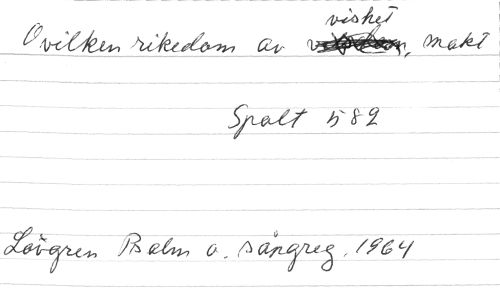 vishet
O vilken rikedom av , makt
Spalt 582
Lövgren Psalm o. sångreg. 1964